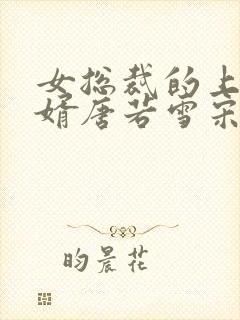 女总裁的上
婿唐若雪宋
昀晨花